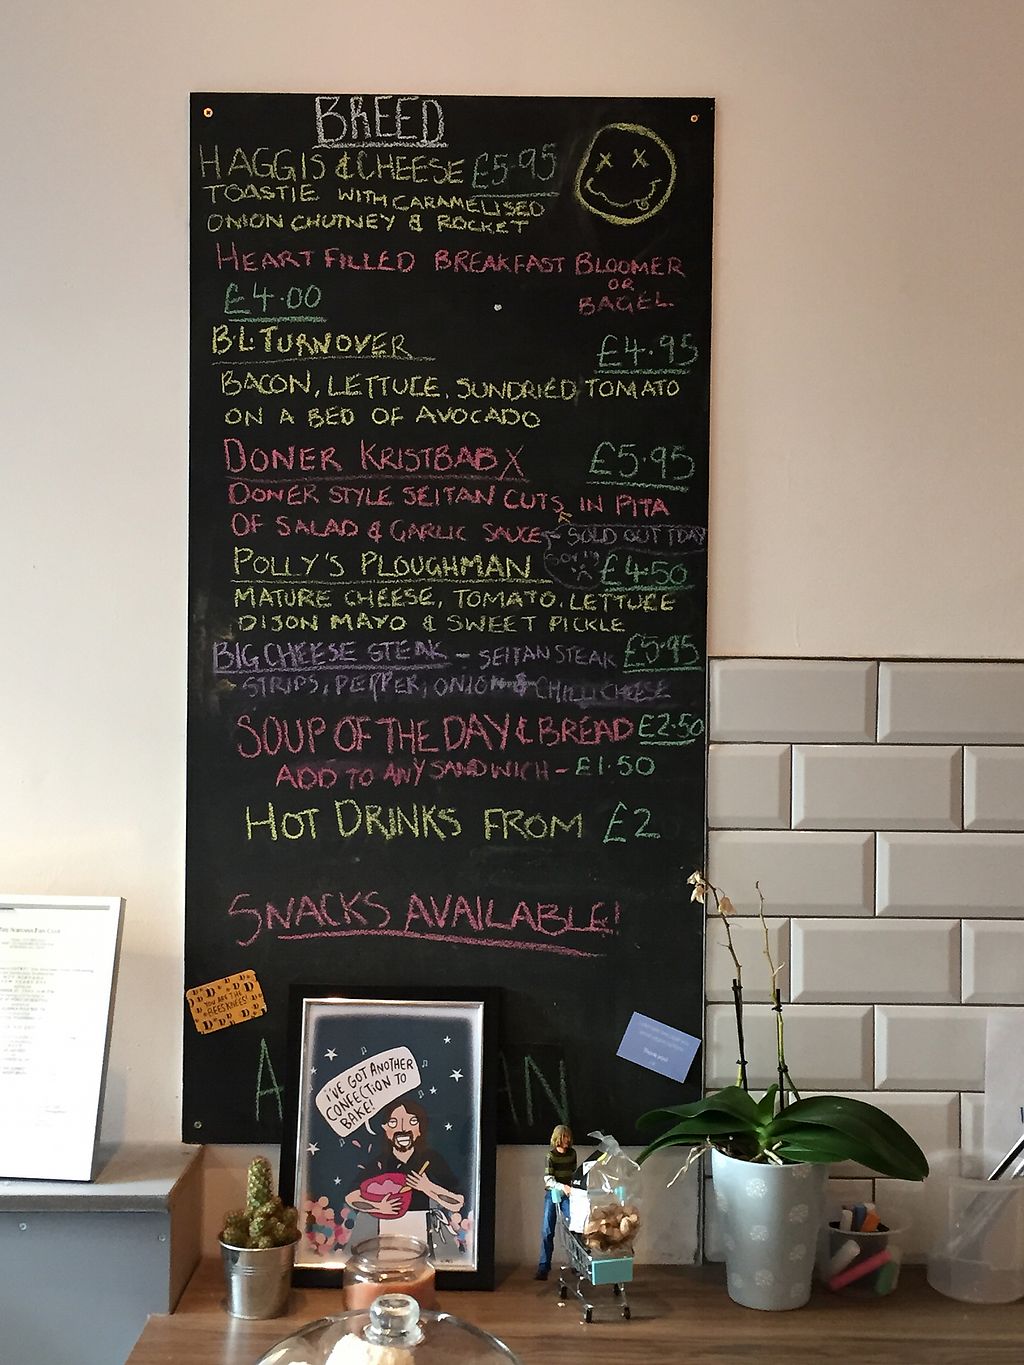 BREED
HAGGIS & CHEESE £5.95
TOASTIE WITH CARAMELISED
ONION CHUTNEY & ROCKET
HEART FILLED BREAKFAST BLOOMER
OR
£4.00 BAGEL.
B.L.TURNOVER £4.95
BACON, LETTUCE, SUNDRIED TOMATO
ON A BED OF AVOCADO
DONER KRISTBAB X £5.95
DONER STYLE SEITAN CUTS IN PITA
OF SALAD & GARLIC SAUCE SOLD OUT TDAY
SORRY
POLLY'S PLOUGHMAN £4.50
MATURE CHEESE, TOMATO, LETTUCE
DIJON MAYO & SWEET PICKLE
BIG CHEESE STEAK - SEITAN STEAK £5.95
STRIPS, PEPPER, ONION & CHILLI CHEESE
SOUP OF THE DAY & BREAD £2.50
ADD TO ANY SANDWICH - £1.50
HOT DRINKS FROM £2
SNACKS AVAILABLE!
YOU ARE THE
BEES KNEES!
A AN
I'VE GOT ANOTHER
CONFECTION TO
BAKE!
Thank you!